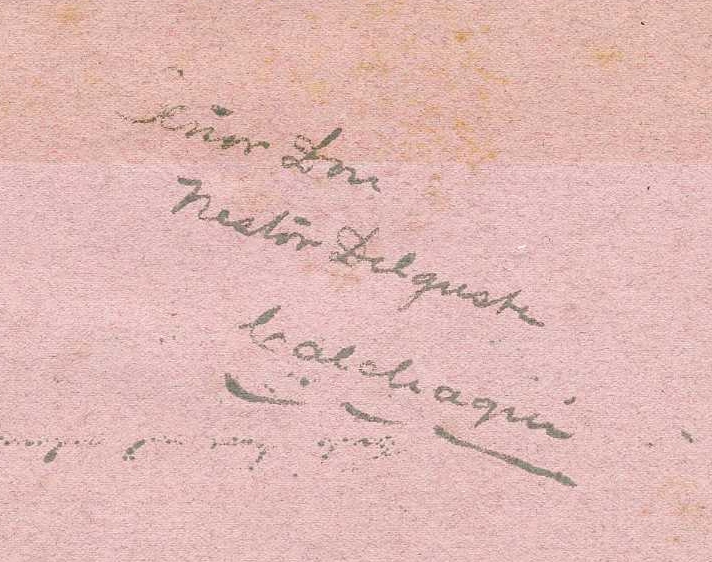 Señor Don
Nestor Delguste
Calchaquí